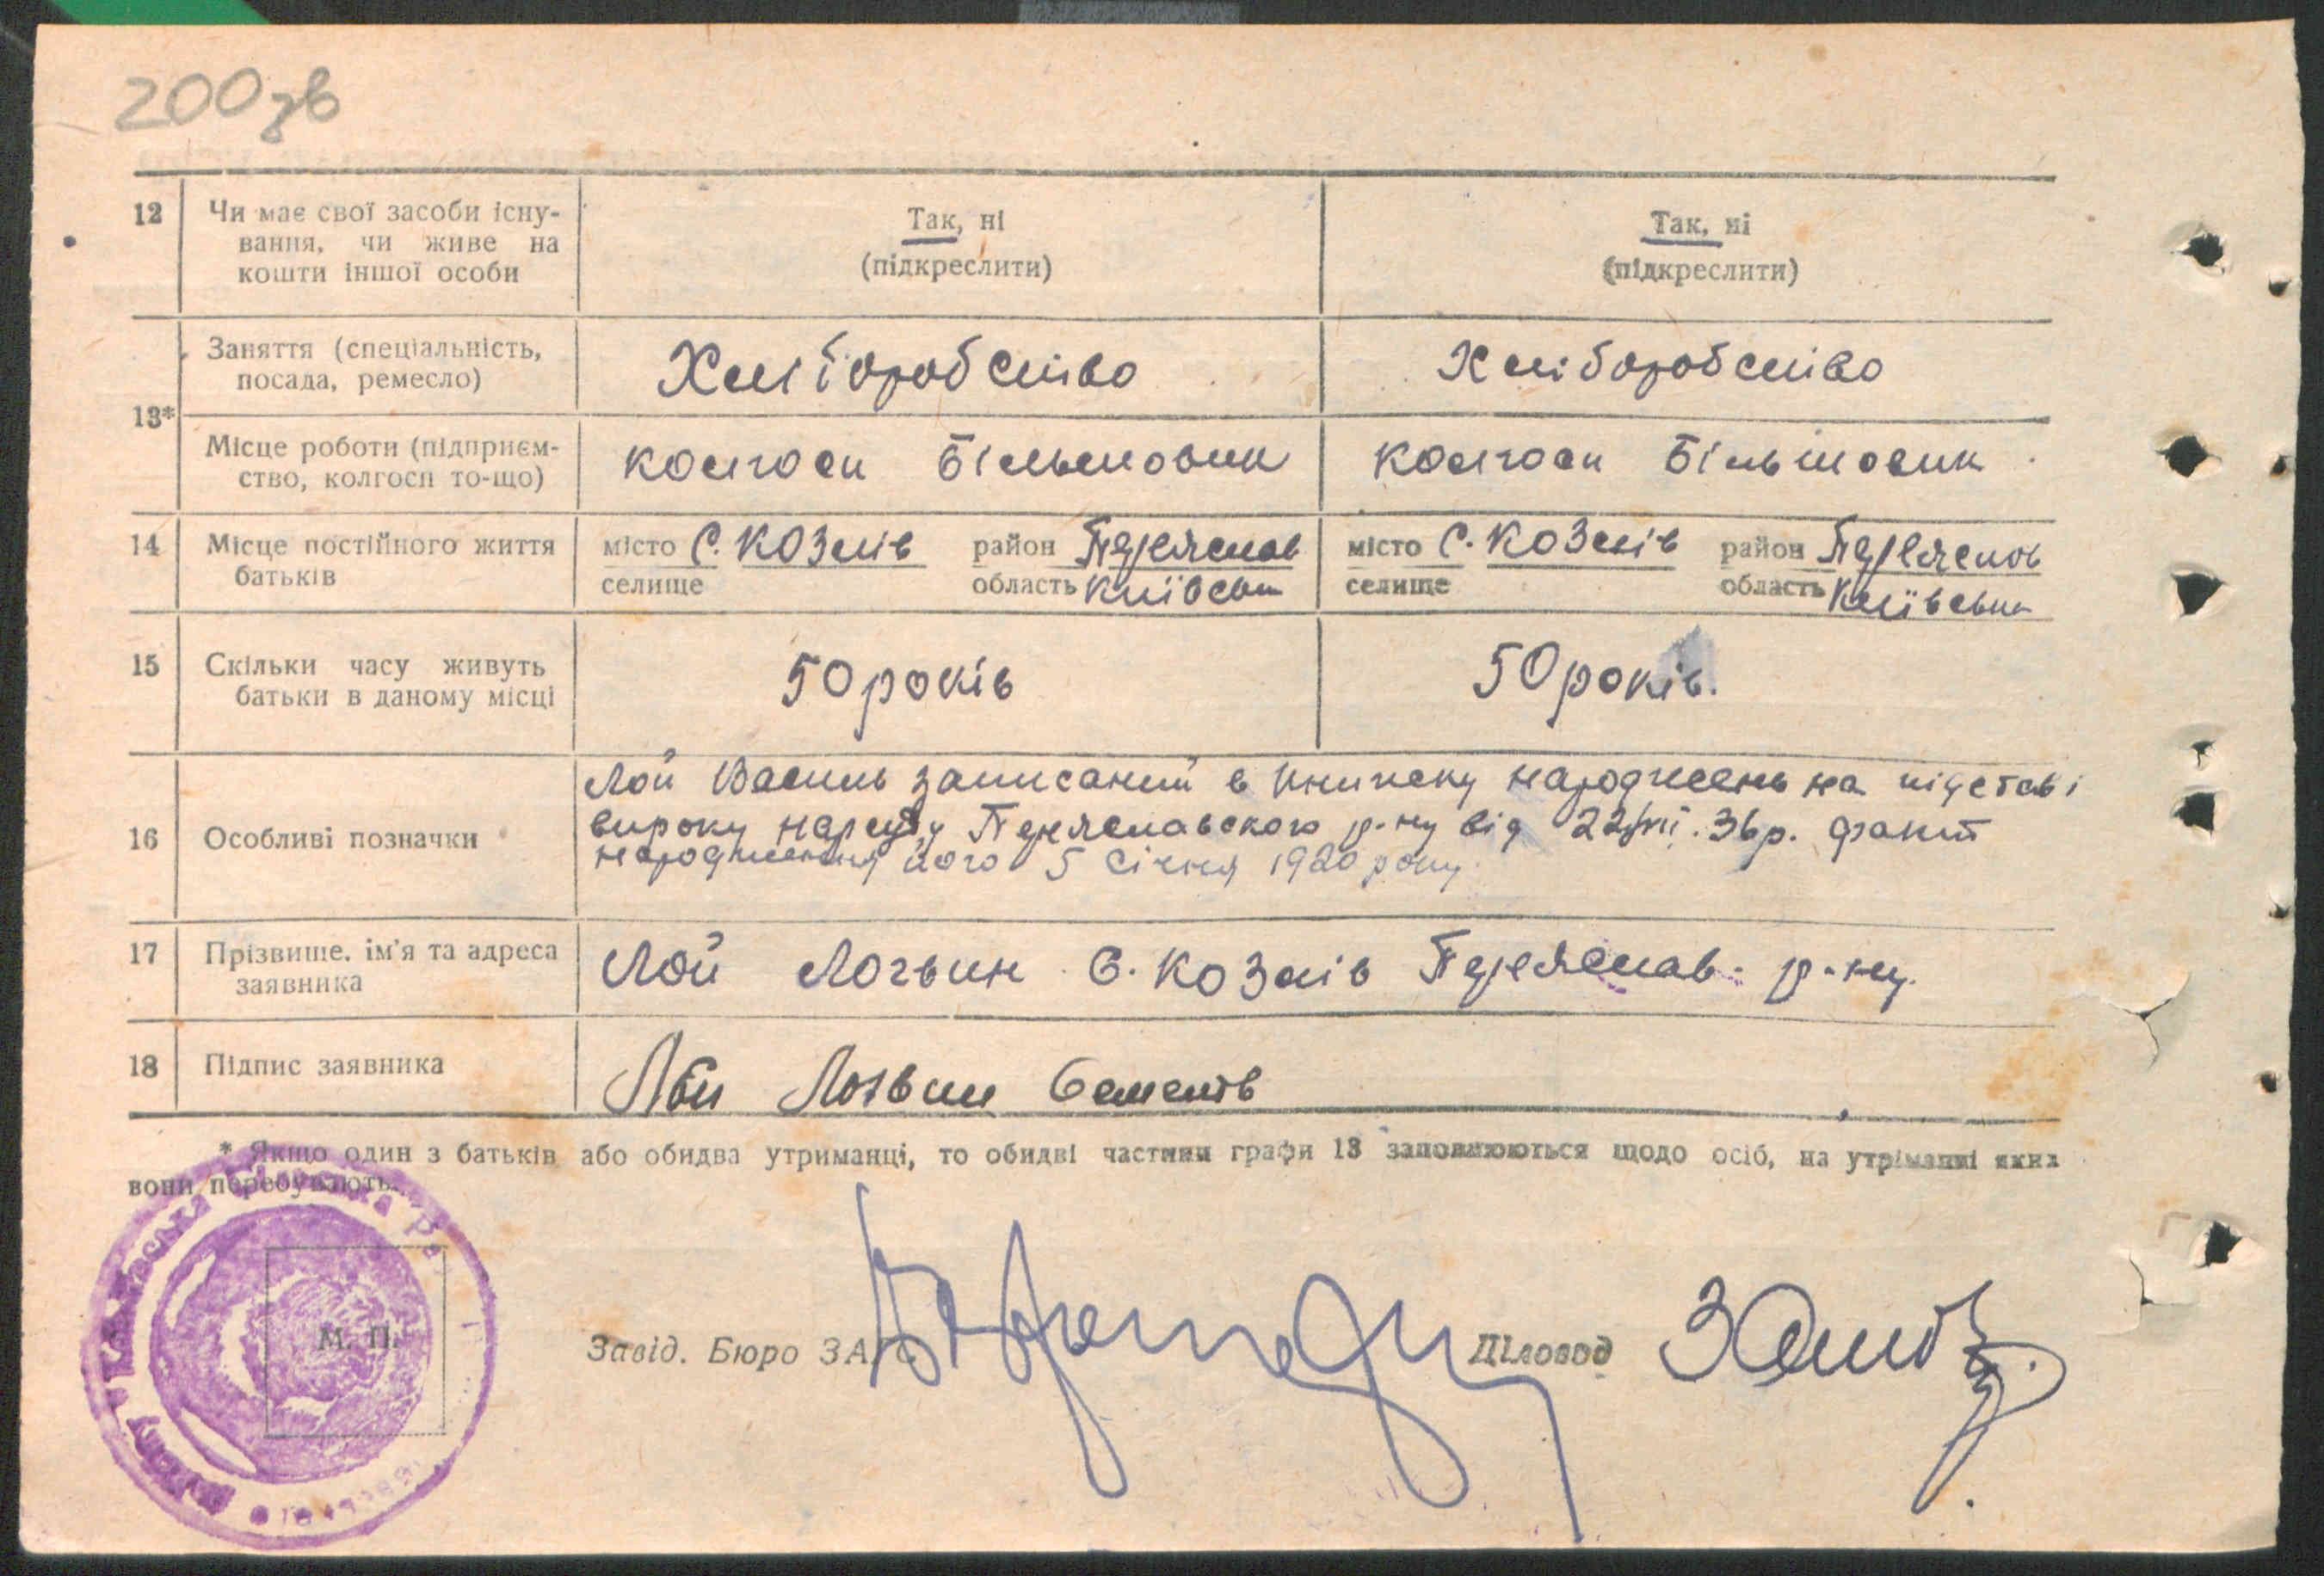 200зв
12 Чи має свої засоби існу- Так, ні Так, ні
вання, чи живе на (підкреслити) (підкреслити)
кошти іншої особи
Заняття (спеціальність, Хліборобство Хліборобство
посада, ремесло)
13*
Місце роботи (підприєм- колгосп Більшовик колгосп Більшовик
ство, колгосп то-що)
14 Місце постійного життя місто С. Козлів район Переяслав місто С. Козлів район Переяслав
батьків селище область Київська селище область Київська
15 Скільки часу живуть 50 років 50 років.
батьки в даному місці
Лой Василь записаний в книжку народжень на підставі
16 Особливі позначки вироку нарсуду Переяславского р-ну від 22/VII. 36р. факт
народження його 5 січня 1920 року.
17 Прізвище, ім'я та адреса Лой Логвин С. Козлів Переяслав. р-ну.
заявника
18 Підпис заявника Лой Логвин Семенів
* Якщо один з батьків або обидва утриманці, то обидві частини графи 13 заповнюються щодо осіб, на утріманні яких
вони перебувають.
М. П.
Завід. Бюро ЗАГС Діловод